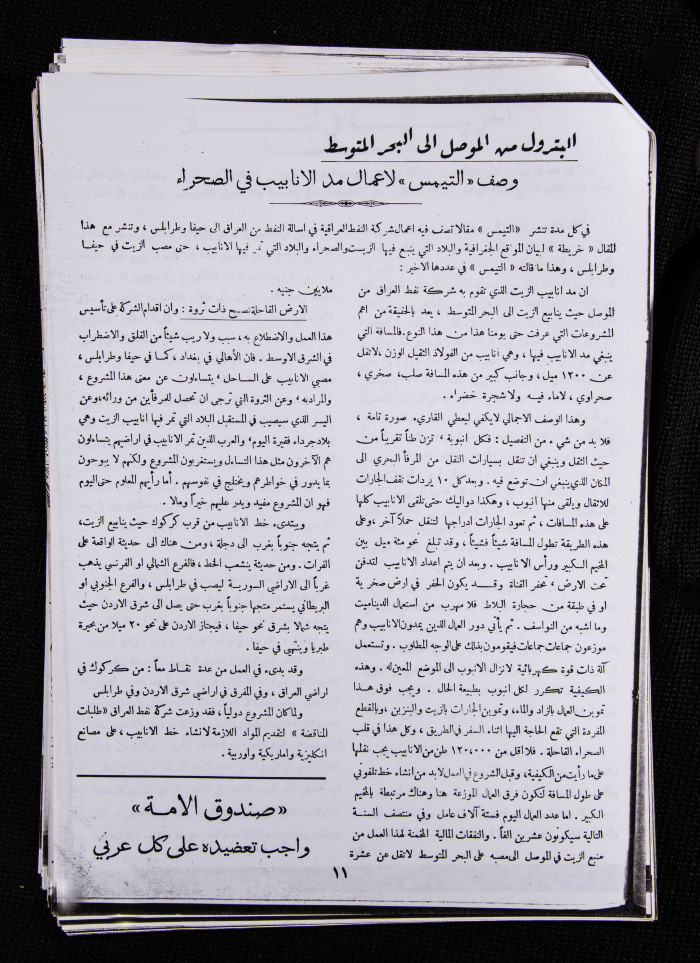 البترول من الموصل الى البحر المتوسط
وصف «التيمس» لاعمال مد الانابيب في الصحراء
في كل مدة تنشر «التيمس» مقالا تصف فيه اعمال شركة النفط العراقية في اسالة النفط من العراق الى حيفا وطرابلس ، وتنشر مع هذا
المقال «خريطة» لبيان المواقع الجغرافية والبلاد التي ينبع فيها الزيت والصحراء والبلاد التي تمر فيها الانابيب ، حتى مصب الزيت في حيفا
وطرابلس ، وهذا ما قالته «التيمس» في عددها الاخير :
ان مد انابيب الزيت الذي تقوم به شركة نفط العراق من
الموصل حيث ينابيع الزيت الى البحر المتوسط ، يعد بالحقيقة من اهم
المشروعات التي عرفت حتى يومنا هذا من هذا النوع . فالمسافة التي
ينبغي مد الانابيب فيها ، وهي انابيب من الفولاذ الثقيل الوزن ، لاتقل
عن ١٢٠٠ ميل ، وجانب كبير من هذه المسافة صلب، صخري ،
صحراوي ، لاماء فيه ولا شجرة خضراء .
وهذا الوصف الاجمالي لايكفي ليعطي القارىء صورة تامة ،
فلا بد من شيء من التفصيل : فكل انبوبة ، تزن طناً تقريباً من
حيث الثقل وينبغي ان تنقل بسيارات النقل من المرفأ البحري الى
المكان الذي ينبغي ان توضع فيه . وبعد كل ١٠ يردات تقف الجارات
للاثقال ويلقى منها انبوب ، وهكذا دواليك حتى تلقى الانابيب كلها
على هذه المسافات ، ثم تعود الجارات ادراجها لتنقل حملاً آخر ، وعلى
هذه الطريقة تطول المسافة شيئاً فشيئاً ، وقد تبلغ نحو مئة ميل بين
المخيم الكبير ورأس الانابيب . وبعد ان يتم اعداد الانابيب لتدفن
تحت الارض ، تحفر القناة وقد يكون الحفر في ارض صخرية
او في طبقة من حجارة البلاط فلا مهرب من استعمال الديناميت
وما اشبه من النواسف . ثم يأتي دور العمال الذين يمدون الانابيب وهم
موزعون جماعات جماعات فيقومون بذلك على الوجه المطلوب . وتستعمل
آلة ذات قوة كهربائية لانزال الانبوب الى الموضع المعين له . وهذه
الكيفية تكرر لكل انبوب بطبيعة الحال . ويجب فوق هذا
تموين العمال بالزاد والماء، وتموين الجارات بالزيت والبنزين ، وبالقطع
المفردة التي تقع الحاجة اليها اثناء السير في الطريق ، وكل هذا في قلب
الصحراء القاحلة . فلا اقل من ١٢٠،٠٠٠ طن من الانابيب يجب نقلها
على ما رأيت من الكيفية، وقبل الشروع في العمل لابد من انشاء خط تلفوني
على طول المسافة لتكون فرق العمال الموزعة هنا وهناك مرتبطة بالمخيم
الكبير . اما عدد العمال اليوم فستة آلاف عامل وفي منتصف السنة
التالية سيكونون عشرين الفاً . والنفقات المالية المخمنة لهذا العمل من
منبع الزيت في الموصل الى مصبه على البحر المتوسط لاتقل عن عشرة
ملايين جنيه .
الارض القاحلة تصبح ذات ثروة : وان اقدام الشركة على تأسيس
هذا العمل والاضطلاع به ، سبب ولا ريب شيئاً من القلق والاضطراب
في الشرق الاوسط . فان الأهالي في بغداد ، كما في حيفا وطرابلس ،
مصبي الانابيب على الساحل ، يتساءلون عن معنى هذا المشروع ،
والمراد به ، وعن الثروة التي ترجى ان تحصل للمرفأين من ورائه، وعن
اليسر الذي سيصيب في المستقبل البلاد التي تمر فيها انابيب الزيت وهي
بلاد جرداء فقيرة اليوم ، والعرب الذين تمر الانابيب في اراضيهم يتساءلون
هم الآخرون مثل هذا التساءل ويستغربون المشروع ولكنهم لا يبوحون
بما يدور في خواطرهم ويختلج في نفوسهم . أما رأيهم المعلوم حتى اليوم
فهو ان المشروع مفيد ويدر عليهم خيراً ومالا .
ويبتدىء خط الانابيب من قرب كركوك حيث ينابيع الزيت،
ثم يتجه جنوباً بغرب الى دجلة ، ومن هناك الى حديثة الواقعة على
الفرات . ومن حديثة ينشعب الخط ، فالفرع الشمالي او الفرنسي يذهب
غرباً الى الاراضي السورية ليصب في طرابلس ، والفرع الجنوبي او
البريطاني يستمر متجها جنوباً بغرب حتى يصل الى شرق الاردن حيث
يتجه شمالا بشرق نحو حيفا ، فيجتاز الاردن على نحو ٢٠ ميلا من بحيرة
طبريا وينتهي في حيفا .
وقد بدىء في العمل من عدة نقاط معاً : من كركوك في
اراضي العراق ، وفي المفرق في اراضي شرق الاردن وفي طرابلس
ولما كان المشروع دولياً ، فقد وزعت شركة نفط العراق «طلبات
المناقضة » لتقديم المواد اللازمة لانشاء خط الانابيب ، على مصانع
انكليزية واماريكية واوربية .
«صندوق الامة»
واجب تعضيده على كل عربي
١١